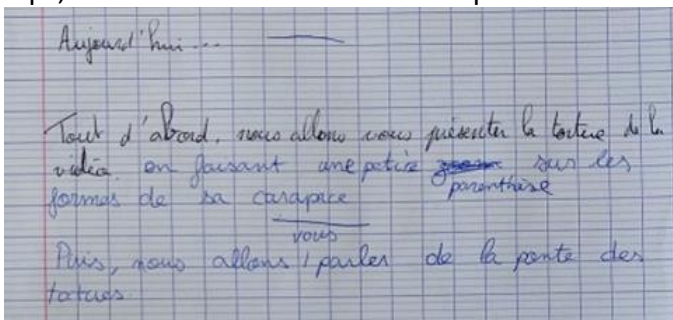 Aujourd'hui...
Tout d'abord, nous allons vous présenter la tortue de la
vidéo. en faisant une petite parenthèse sur les
formes de sa carapace
Puis, nous allons vous parler de la ponte des
tortues.